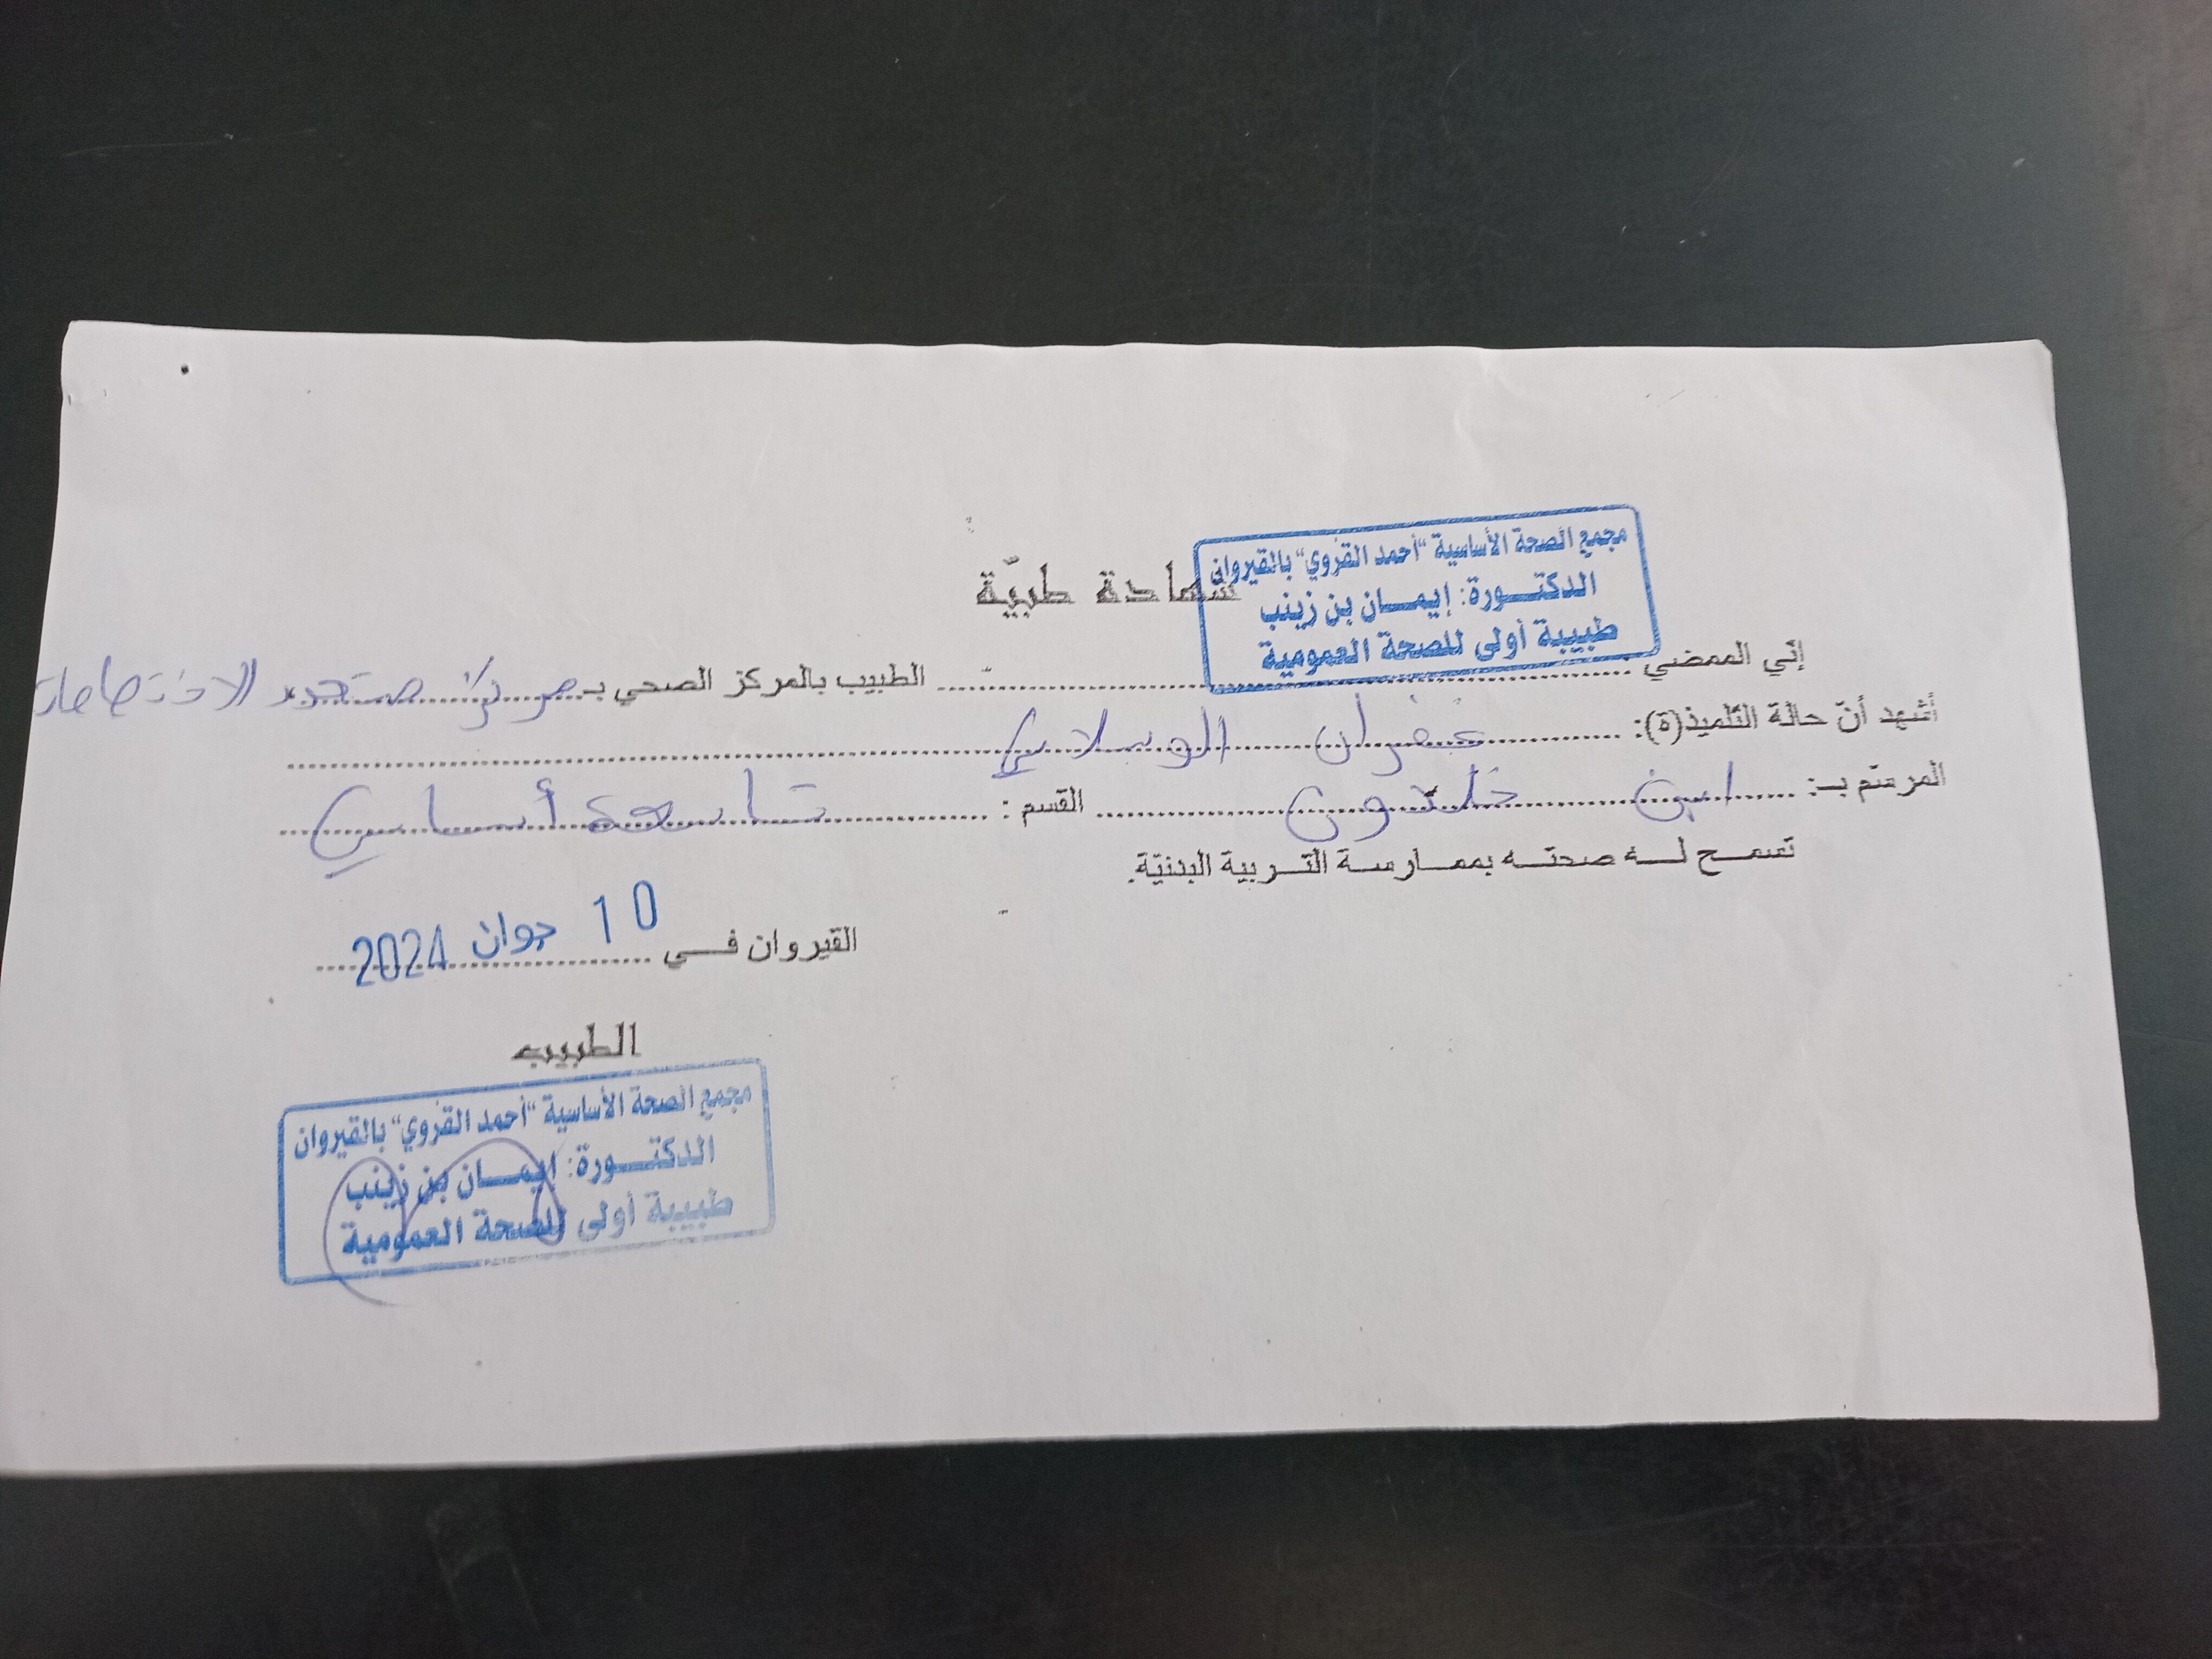 شهادة طبيّة
مجمع الصحة الأساسية "أحمد القروي" بالقيروان
الدكتـــورة: إيمــان بن زينب
طبيبة أولى للصحة العمومية
إنّي الممضي ........ الطبيب بالمركز الصحي بـ مركز متعدد الاختصاصات
أشهد أنّ حالة التلميذ(ة): غفران الوسلاتي
المرسّم بـ: ابن خلدون القسم : تاسعة أساسي
تسمــح لــه صحتــه بممــارســة التــربية البدنيّة.
القيروان فــي 10 جوان 2024
الطبيب
مجمع الصحة الأساسية "أحمد القروي" بالقيروان
الدكتـــورة: إيمــان بن زينب
طبيبة أولى للصحة العمومية